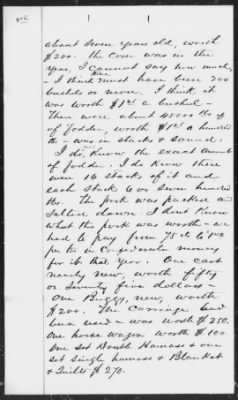 about seven year old, worth
$200. the corn was in the
year, I cannot say how much,
- I think there must have been 200
bushels or more. I think it
was worth $1.00 a bushel -
There were about 4000 lbs of
of fodder, worth $1.00 a hundred
lbs - was in stacks & sound.
I do know the exact amount
of fodder. I do know there
were 14 stacks of it and
each stack 6 or seven hundred
lbs. The pork was packed and
salted down. I dont know
what the pork was worth - we
had to pay from 75 cts to $1.00
in Confederate money
for it that year. One cart
nearly new, worth fifty
or seventy five dollars -
One Buggy, new, worth
$200. The Carriage had
been used - was worth $250.
One horse wagon worth $100.
One set Double Harness & one
set single harness & Blanket
& Quilts $270.